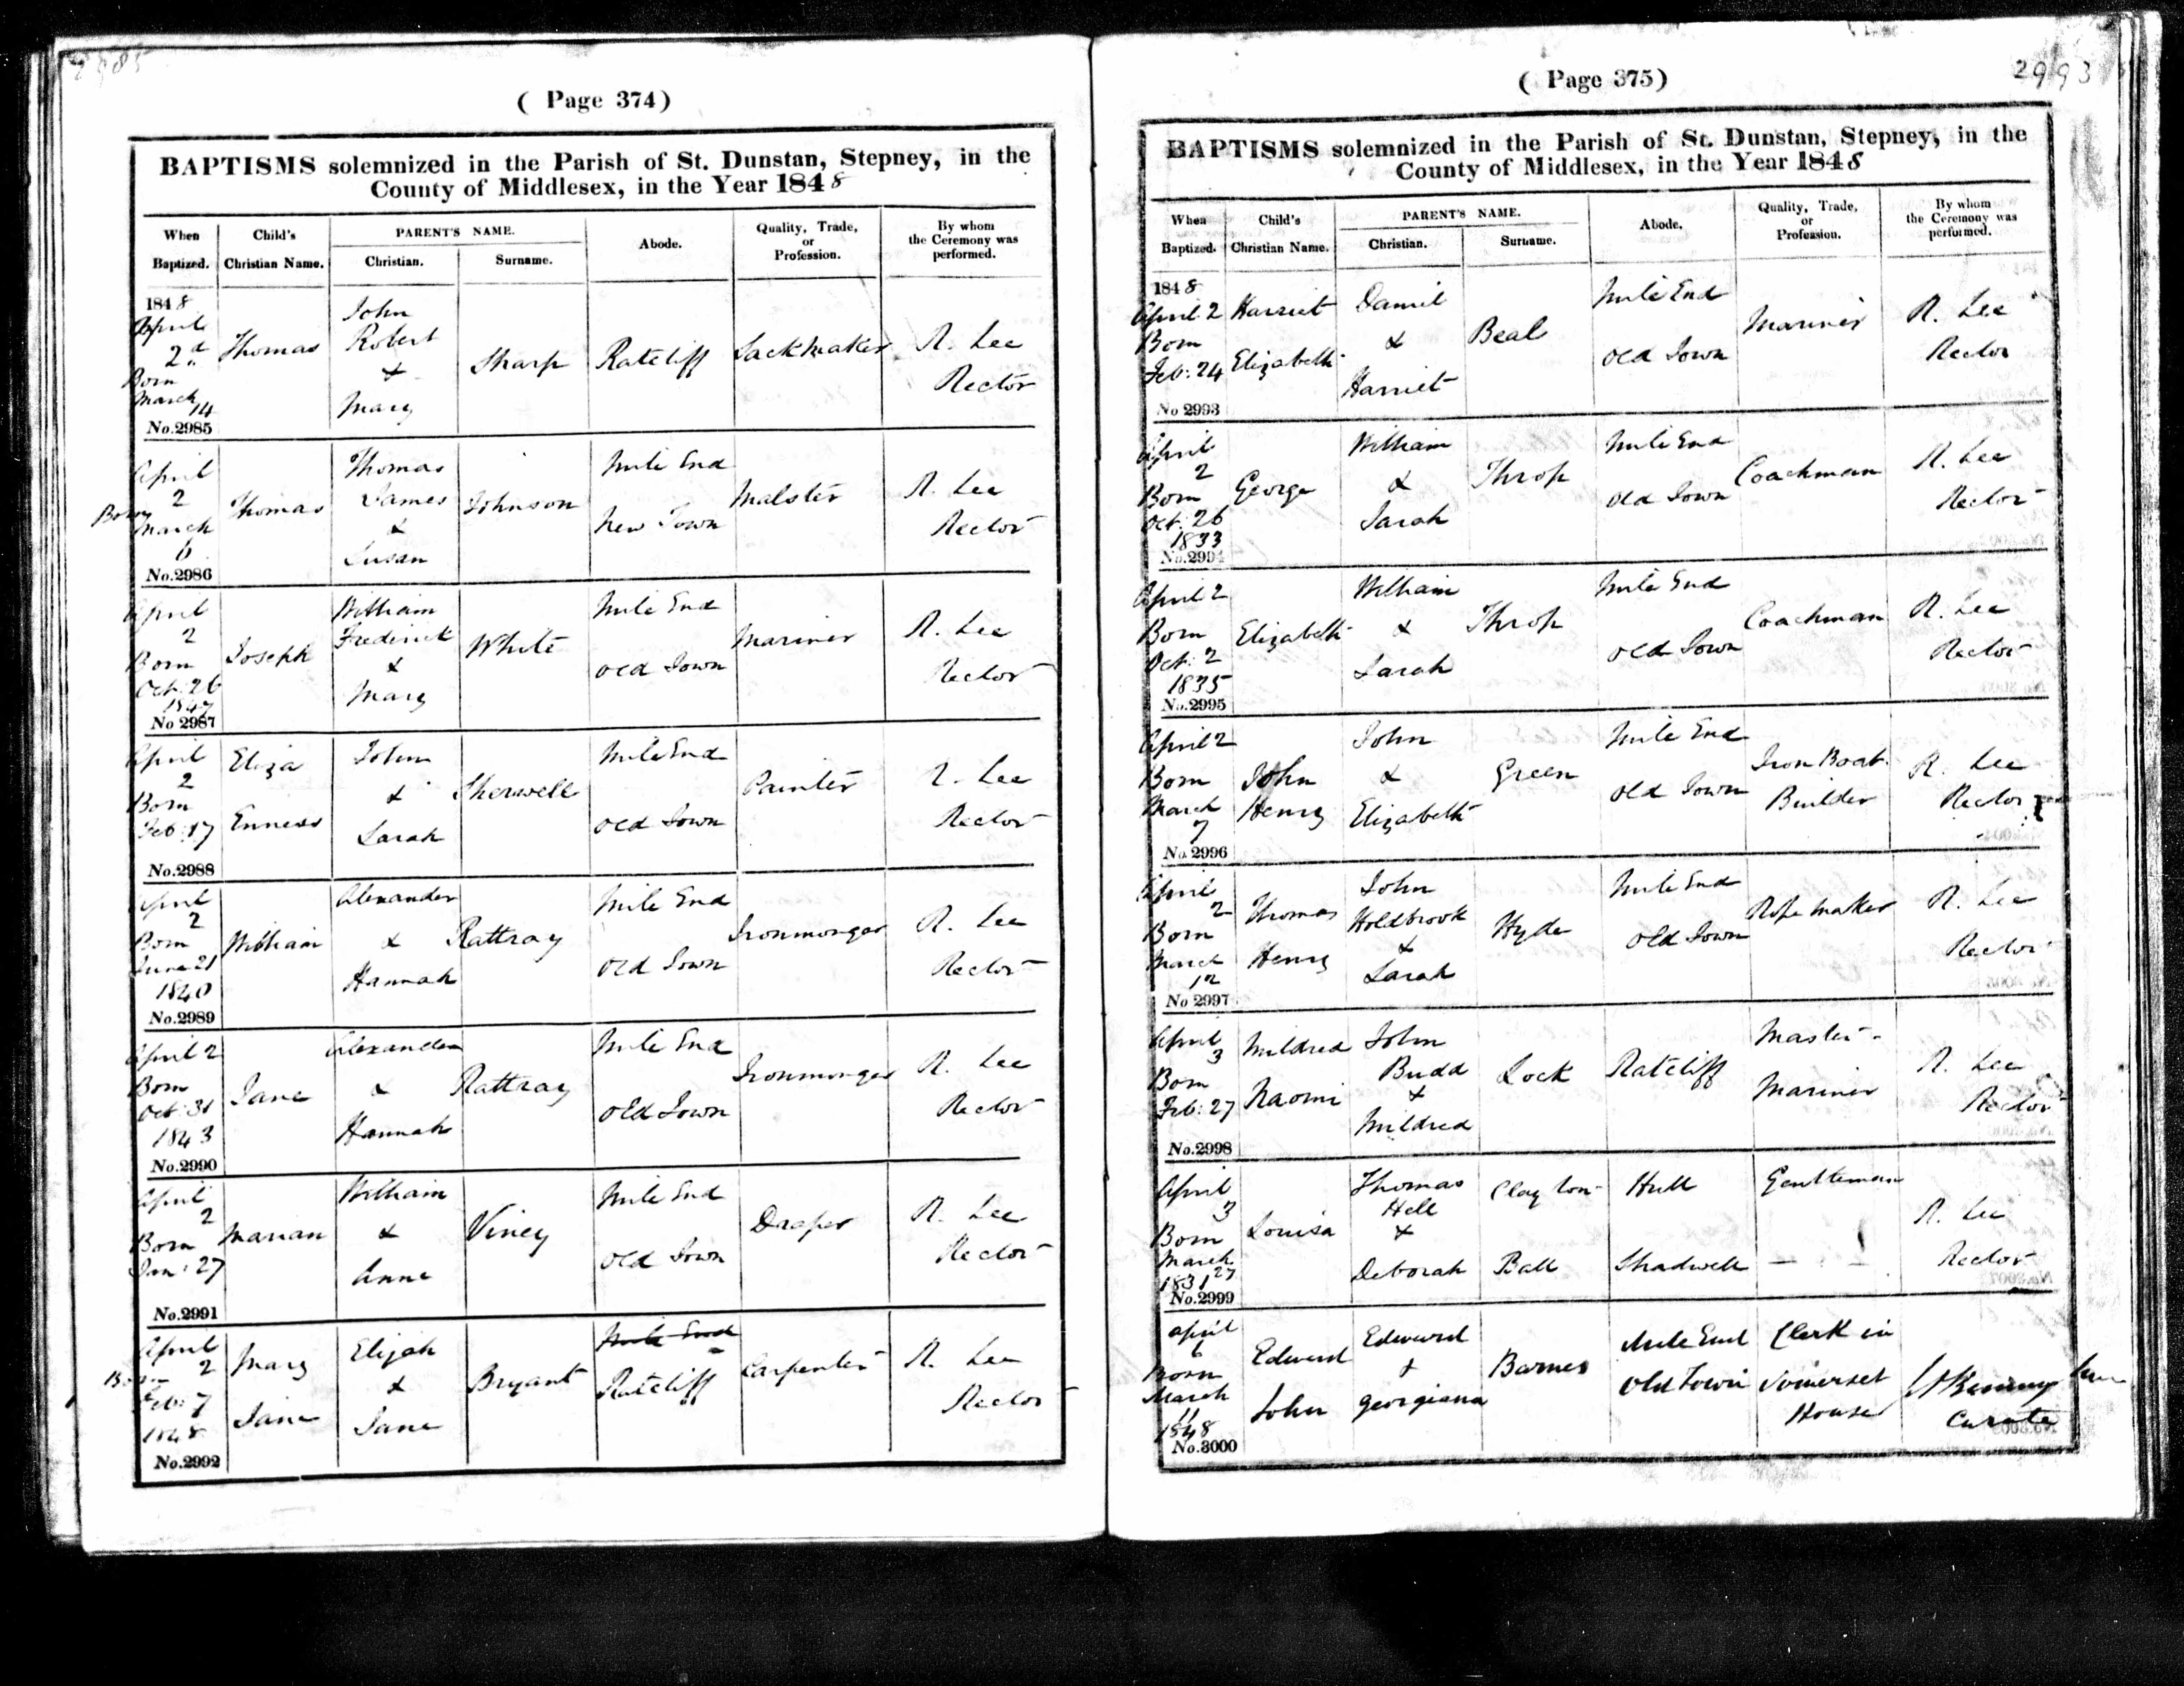 2985
( Page 374)
BAPTISMS solemnized in the Parish of St. Dunstan, Stepney, in the
County of Middlesex, in the Year 1848
When Baptized. Child's Christian Name. PARENT'S NAME. Christian. Surname. Abode. Quality, Trade, or Profession. By whom the Ceremony was performed.
1848
April 2d Born March 14 Thomas John Robert & Mary Sharp Ratcliff Sackmaker R. Lee Rector
No. 2985
April 2 Born March 6 Thomas Thomas James & Susan Johnson Mile End New Town Malster R. Lee Rector
No. 2986
April 2 Born Oct: 26 1847 Joseph William Frederick & Mary White Mile End Old Town Mariner R. Lee Rector
No 2987
April 2 Born Feb: 17 Eliza John & Sarah Sherwell Mile End Old Town Painter R. Lee Rector
No. 2988
April 2 Born June 21 1840 William Alexander & Hannah Rattray Mile End Old Town Ironmonger R. Lee Rector
No. 2989
April 2 Born Oct: 31 1843 Jane Alexander & Hannah Rattray Mile End Old Town Ironmonger R. Lee Rector
No. 2990
April 2 Born Jan: 27 Marian William & Anne Viney Mile End Old Town Draper R. Lee Rector
No. 2991
April 2 Born Feb: 7 1848 Mary Jane Elijah & Jane Bryant Mile End Ratcliff Carpenter R. Lee Rector
No. 2992
2993
( Page 375)
BAPTISMS solemnized in the Parish of St. Dunstan, Stepney, in the
County of Middlesex, in the Year 1848
When Baptized. Child's Christian Name. PARENT'S NAME. Christian. Surname. Abode. Quality, Trade, or Profession. By whom the Ceremony was performed.
1848
April 2 Born Feb: 24 Harriet Elizabeth Daniel & Harriet Beal Mile End Old Town Mariner R. Lee Rector
No 2993
April 2 Born Oct: 26 1833 George William & Sarah Throp Mile End Old Town Coachman R. Lee Rector
No. 2994
April 2 Born Oct: 2 1835 Elizabeth William & Sarah Throp Mile End Old Town Coachman R. Lee Rector
No. 2995
April 2 Born March 7 John Henry John & Elizabeth Green Mile End Old Town Iron Boat Builder R. Lee Rector
No. 2996
April 2 Born March 12 Thomas Henry John Holdbrook & Sarah Hyde Mile End Old Town Rope maker R. Lee Rector
No 2997
April 3 Born Feb: 27 Mildred Naomi John Budd & Mildred Lock Ratcliff Master Mariner R. Lee Rector
No. 2998
April 3 Born March 27 1831 Louisa Thomas Hell & Deborah Clayton Ball Hull Shadwell Gentleman — R. Lee Rector
No. 2999
April 6 Born March 11 1848 Edward John Edward & Georgiana Barnes Mile End Old Town Clerk in Somerset House Curate
No. 3000